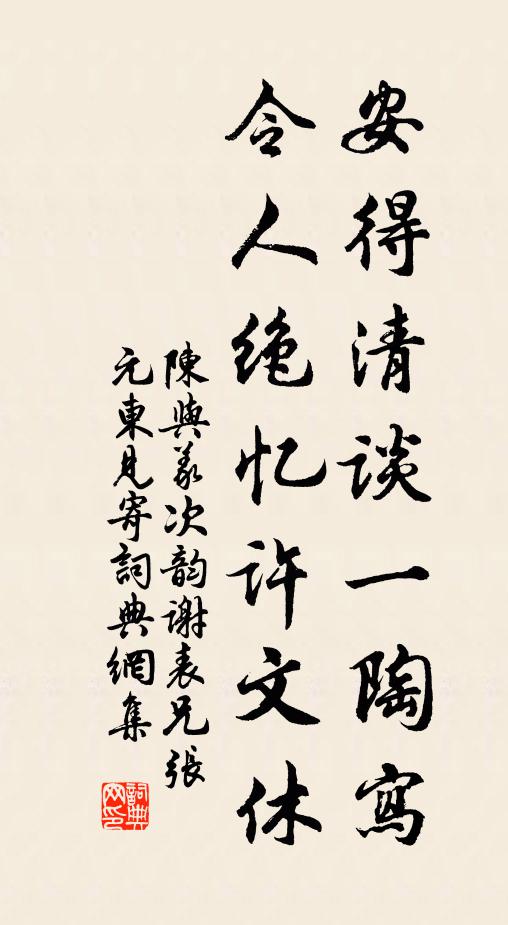 安得清談一陶寫
令人絶忆許文休
陳與義次韵謝表兄張
元東見寄詞典網集
詞典网印